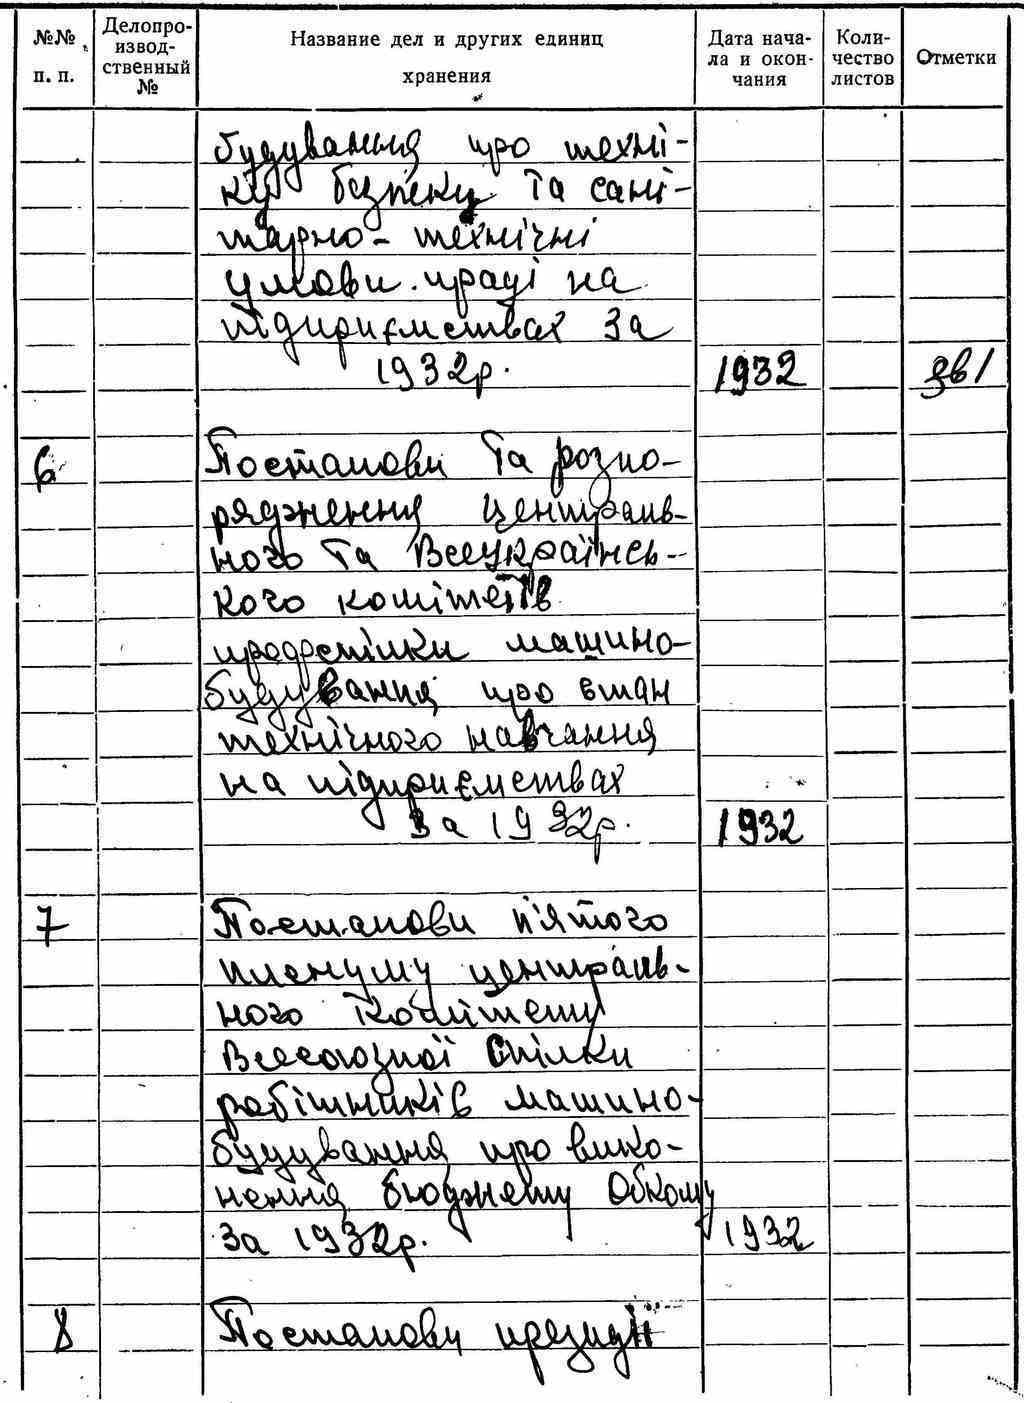 №№ п. п.
Делопроизводственный №
Название дел и других единиц хранения
Дата начала и окончания
Количество листов
Отметки
будування про техні-
ку безпеки та сані-
тарно-технічні
умови праці на
підприємствах за
1932р. 1932
6 Постанови та розпо-
рядження централь-
ного та Всеукраїнсь-
кого комітетів
профспілки машино-
будування про стан
технічного навчання
на підприємствах
за 1932р. 1932
7 Постанови п'ятого
пленуму централь-
ного комітету
Всесоюзної спілки
робітників машино-
будування про вико-
нання бюджету Обкому
за 1932р. 1932
8 Постанови президії